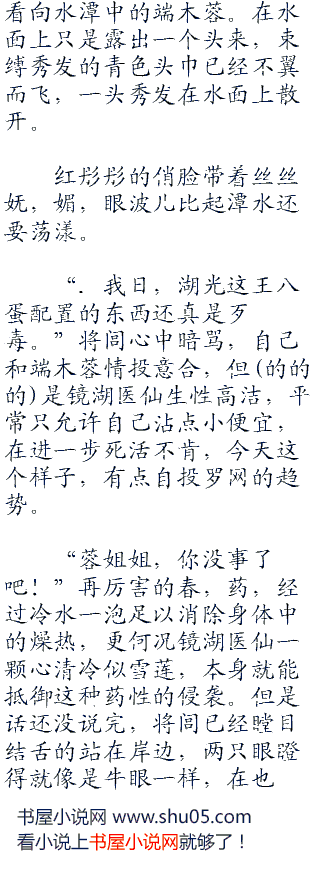 看向水潭中的端木蓉。在水
面上只是露出一个头来，束
缚秀发的青色头巾已经不翼
而飞，一头秀发在水面上散
开。
红彤彤的俏脸带着丝丝
妩，媚，眼波儿比起潭水还
要荡漾。
“．我日，湖光这王八
蛋配置的东西还真是歹
毒。”将闾心中暗骂，自己
和端木蓉情投意合，但(的的
的)是镜湖医仙生性高洁，平
常只允许自己沾点小便宜，
在进一步死活不肯，今天这
个样子，有点自投罗网的趋
势。
“蓉姐姐，你没事了
吧！”再厉害的春，药，经
过冷水一泡足以消除身体中
的燥热，更何况镜湖医仙一
颗心清冷似雪莲，本身就能
抵御这种药性的侵袭。但是
话还没说完，将闾已经瞠目
结舌的站在岸边，两只眼瞪
得就像是牛眼一样，在也
书屋小说网 www.shu05.com
看小说上书屋小说网就够了！